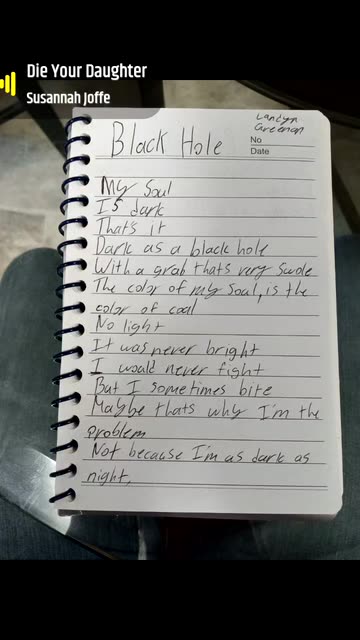 Die Your Daughter
Susannah Joffe
Landyn
Greeman
Black Hole
No
Date
My Soul
Is dark
That's it
Dark as a black hole
With a grab thats very swole
The color of my soul, is the
color of coal
No light
It was never bright
I would never fight
But I sometimes bite
Maybe thats why I'm the
problem
Not because I'm as dark as
night.